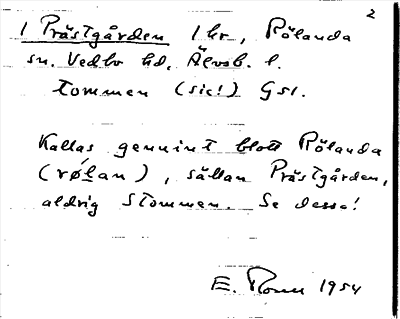 2
1 Prästgården 1 hr, Rölanda
sn. Vedbo hd. Älvsb. l.
Tommen (sic!) GS1.
Kallas genuint blott Rölanda
(rǿ̣lan), sällan Prästgården,
aldrig Stommen. Se dessa!
E. 1954